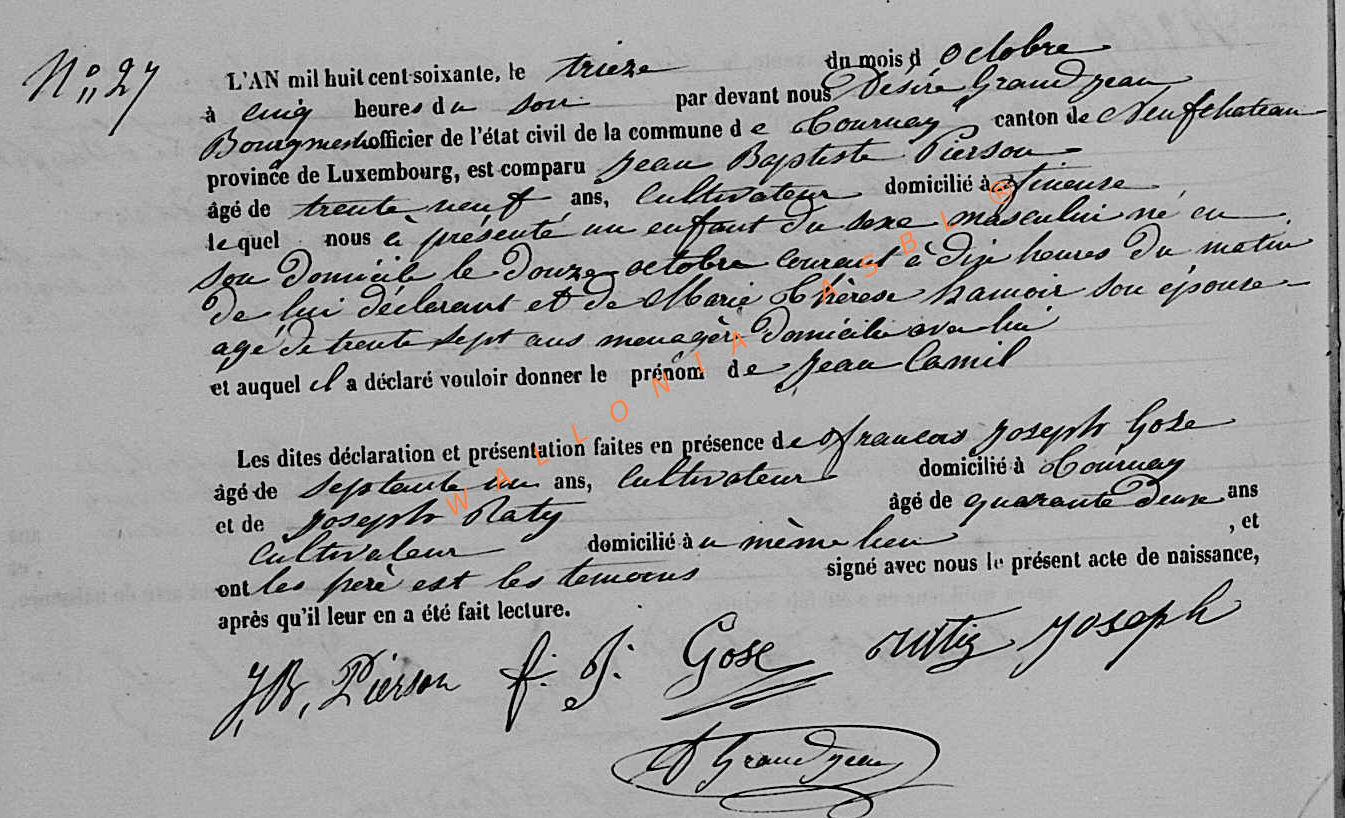 N° 27
L'AN mil huit cent soixante, le trieze du mois d octobre
à cinq heures du soir par devant nous Désiré Grandjean
Bourgmestre officier de l'état civil de la commune de Tournay canton de Neufchateau
province de Luxembourg, est comparu Jean Baptiste Pierson
âgé de trente neuf ans, Cultivateur domicilié à
le quel nous à présenté un enfant du sexe masculin né en
son domicile le douze octobre courant à dix heures du matin
de lui déclarant et de Marie Thérèse hamoir son épouse
agé de trente sept ans menagère domicilié avec lui
et auquel il a déclaré vouloir donner le prénom de Jean Camil
Les dites déclaration et présentation faites en présence de francois joseph Gose
âgé de septante un ans, Cultivateur domicilié à Tournay
et de joseph Raty âgé de quarante deux ans
Cultivateur domicilié à u mème lieu , et
ont les perè est les temoins signé avec nous le présent acte de naissance,
après qu'il leur en a été fait lecture.
J, B, Pierson f. J. Gose joseph
D Grandjean
WALLONIA ASBL ©